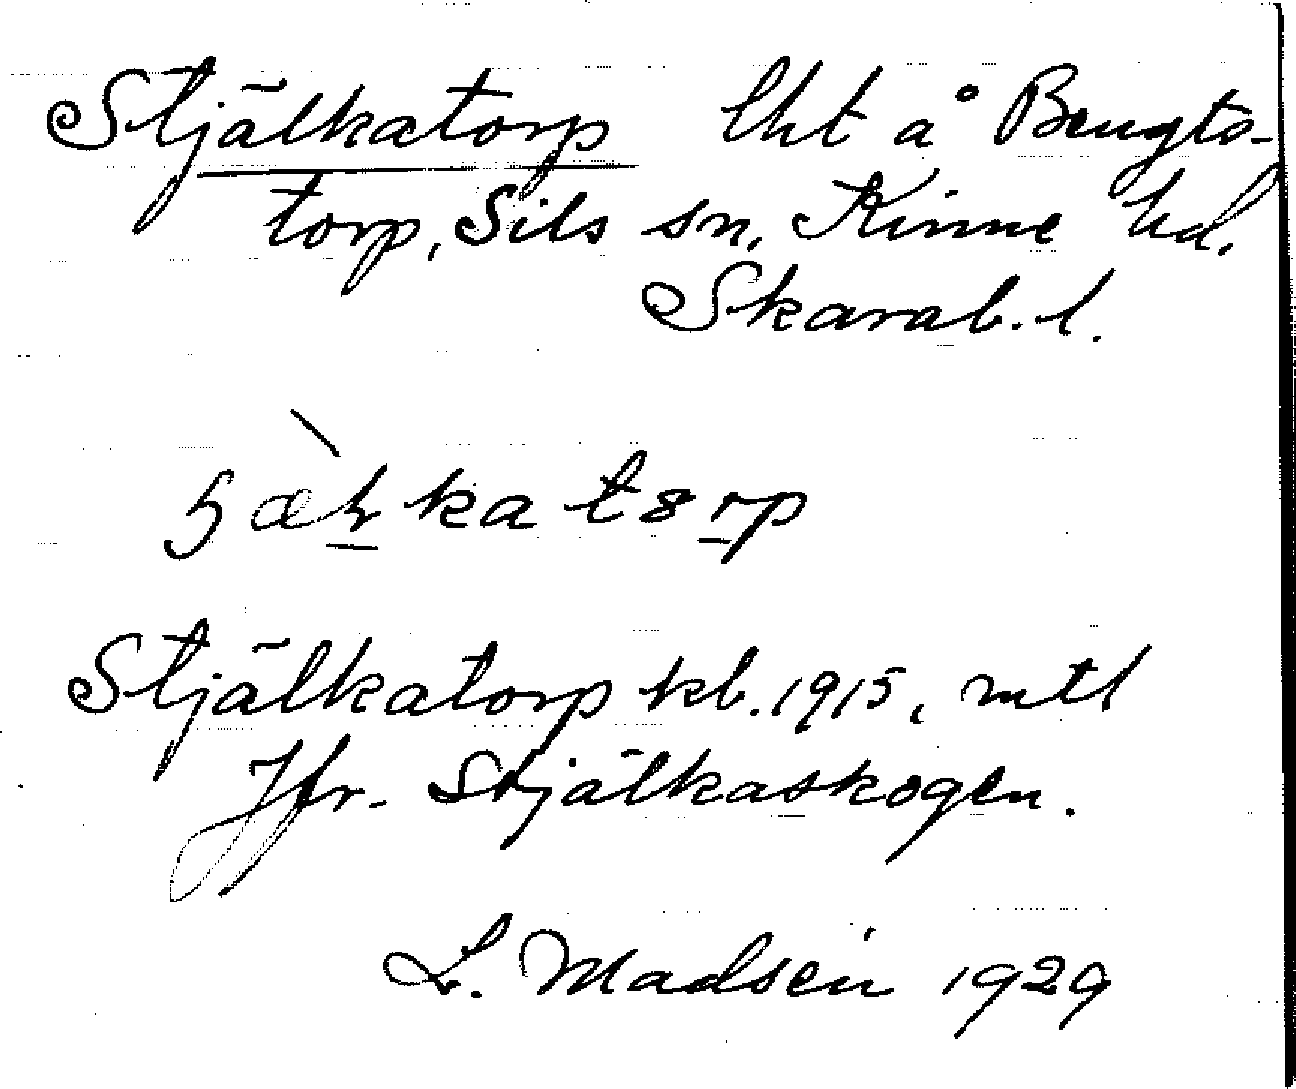 Stjälkatorp lht å Bengts-
torp, Sils sn, Kinne hd.
Skarab. l.
katorp
Stjälkatorp kb. 1915, mtl
Jfr. Stjälkaskogen.
L. Madsén 1929